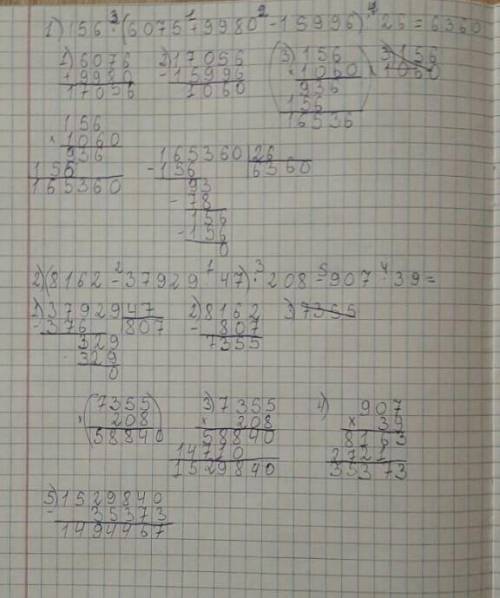 1) 156 · (6075 + 9980 - 15996) : 26 = 6360
1) 6076 2) 17056 3) 156 3) 156
+ 9980 - 15996 · 1060 × 1060
17056 1060 936
156 156
× 1060 16536
936 165360 | 26
156 - 156 6360
165360 93
- 78
156
- 156
0
2) (8162 - 37929 : 47) · 208 - 907 · 39 =
1) 37929 | 47 2) 8162 3) 7355
- 376 807 - 807
329 7355
329
0
(7355 3) 7355 4) 907
· 208 × 208 × 39
58840 58840 8163
14710 2721
1529840 35373
5) 1529840
- 35373
1494467